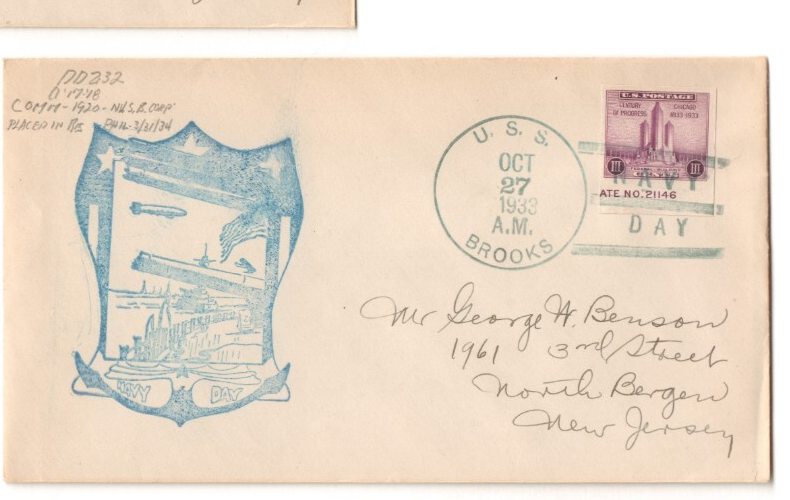 DD232
COMM-1920-N.Y.S.B. CORP
PLACED IN RES PHIL-3/31/34
U.S.S.
OCT
27
1933
A.M.
BROOKS
U.S. POSTAGE
CENTURY OF PROGRESS
CHICAGO 1833-1933
III III
ATE NO. 21146
NAVY
DAY
NAVY DAY
Mr George W. Benson
1961 3rd Street
North Bergen
New Jersey